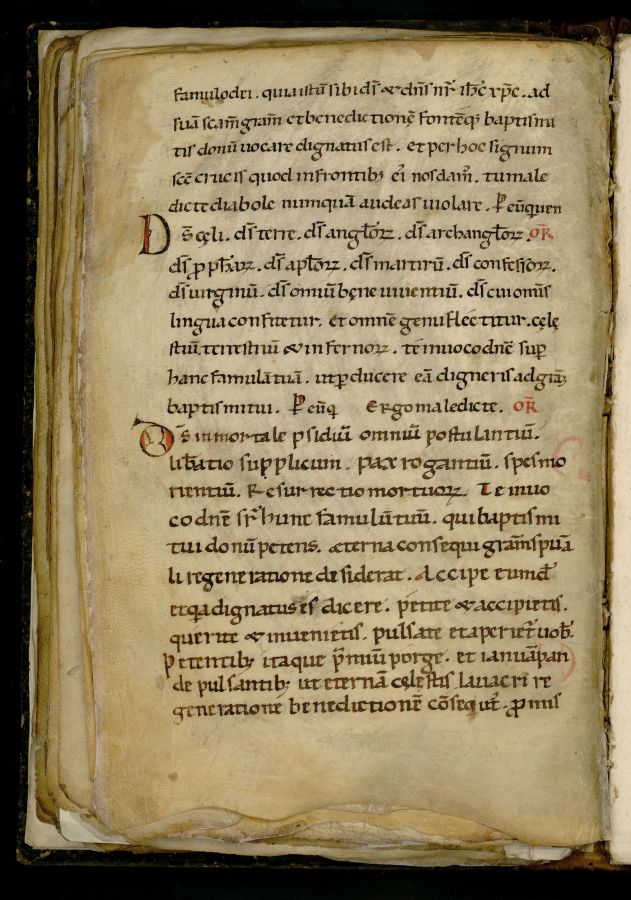 famulo dei. quia istū sibi ds̄ & dn̄s nr̄ ih̄c xp̄c. ad
suā scam̄ gram̄ et benedictionē fontēq; baptismi
tis donū uocare dignatus est. et per hoc signum
scē crucis quod in frontib; ei nos dam̄. tu male
dicte diabole numquā audeas uiolare. P eūquen
Ds̄ cęli. ds̄ terre. ds̄ anglōꝝ. ds̄ archanglōꝝ. OR̄
ds̄ pphāꝝ. ds̄ aplōꝝ. ds̄ martirū. ds̄ confessōꝝ.
ds̄ uirginū. ds̄ omiū bęne uiuentiū. ds̄ cui om̄is
lingua confitetur. et omnē genu flectitur. cęlę
stiū, terrestriū & infernoꝝ. te inuoco dn̄e sup
hanc famulā tuā. ut pducere eā digneris ad grām
baptismi tui. P eūq Ergo maledicte. OR̄
Ds̄ inmortale psidiū omniū postulantiū.
lib̄atio supplicum. pax rogantiū. spes mo
rientiū. Resurrectio mortuoꝝ Te inuo
co dn̄e sr̄ hunc famulū tuū. qui baptismi
tui donū petens. æterna consequi gram̄ spuā
li regeneratione desiderat. Accipe eum dn̄e
et qa dignatus es dicere. petite & accipietis.
querite & inuenietis. pulsate et aperiet̄ uob̄.
petentib; itaque p̄miū porge. et ianuā pan
de pulsantib; ut eternā cęlestis lauacri re
generationē benedictionē cōsequt̄. pmis